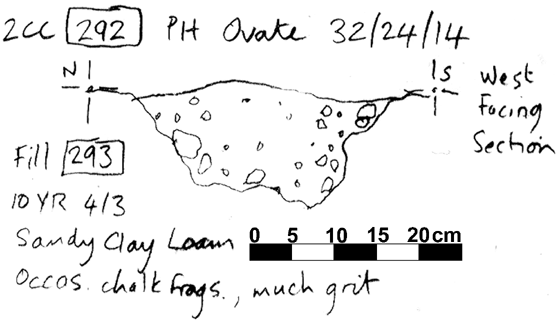 2CC 292 PH Ovate 32/24/14
N S
West
Facing
Section
Fill 293
10 YR 4/3
Sandy Clay Loam
0 5 10 15 20cm
Occas. chalk frags., much grit